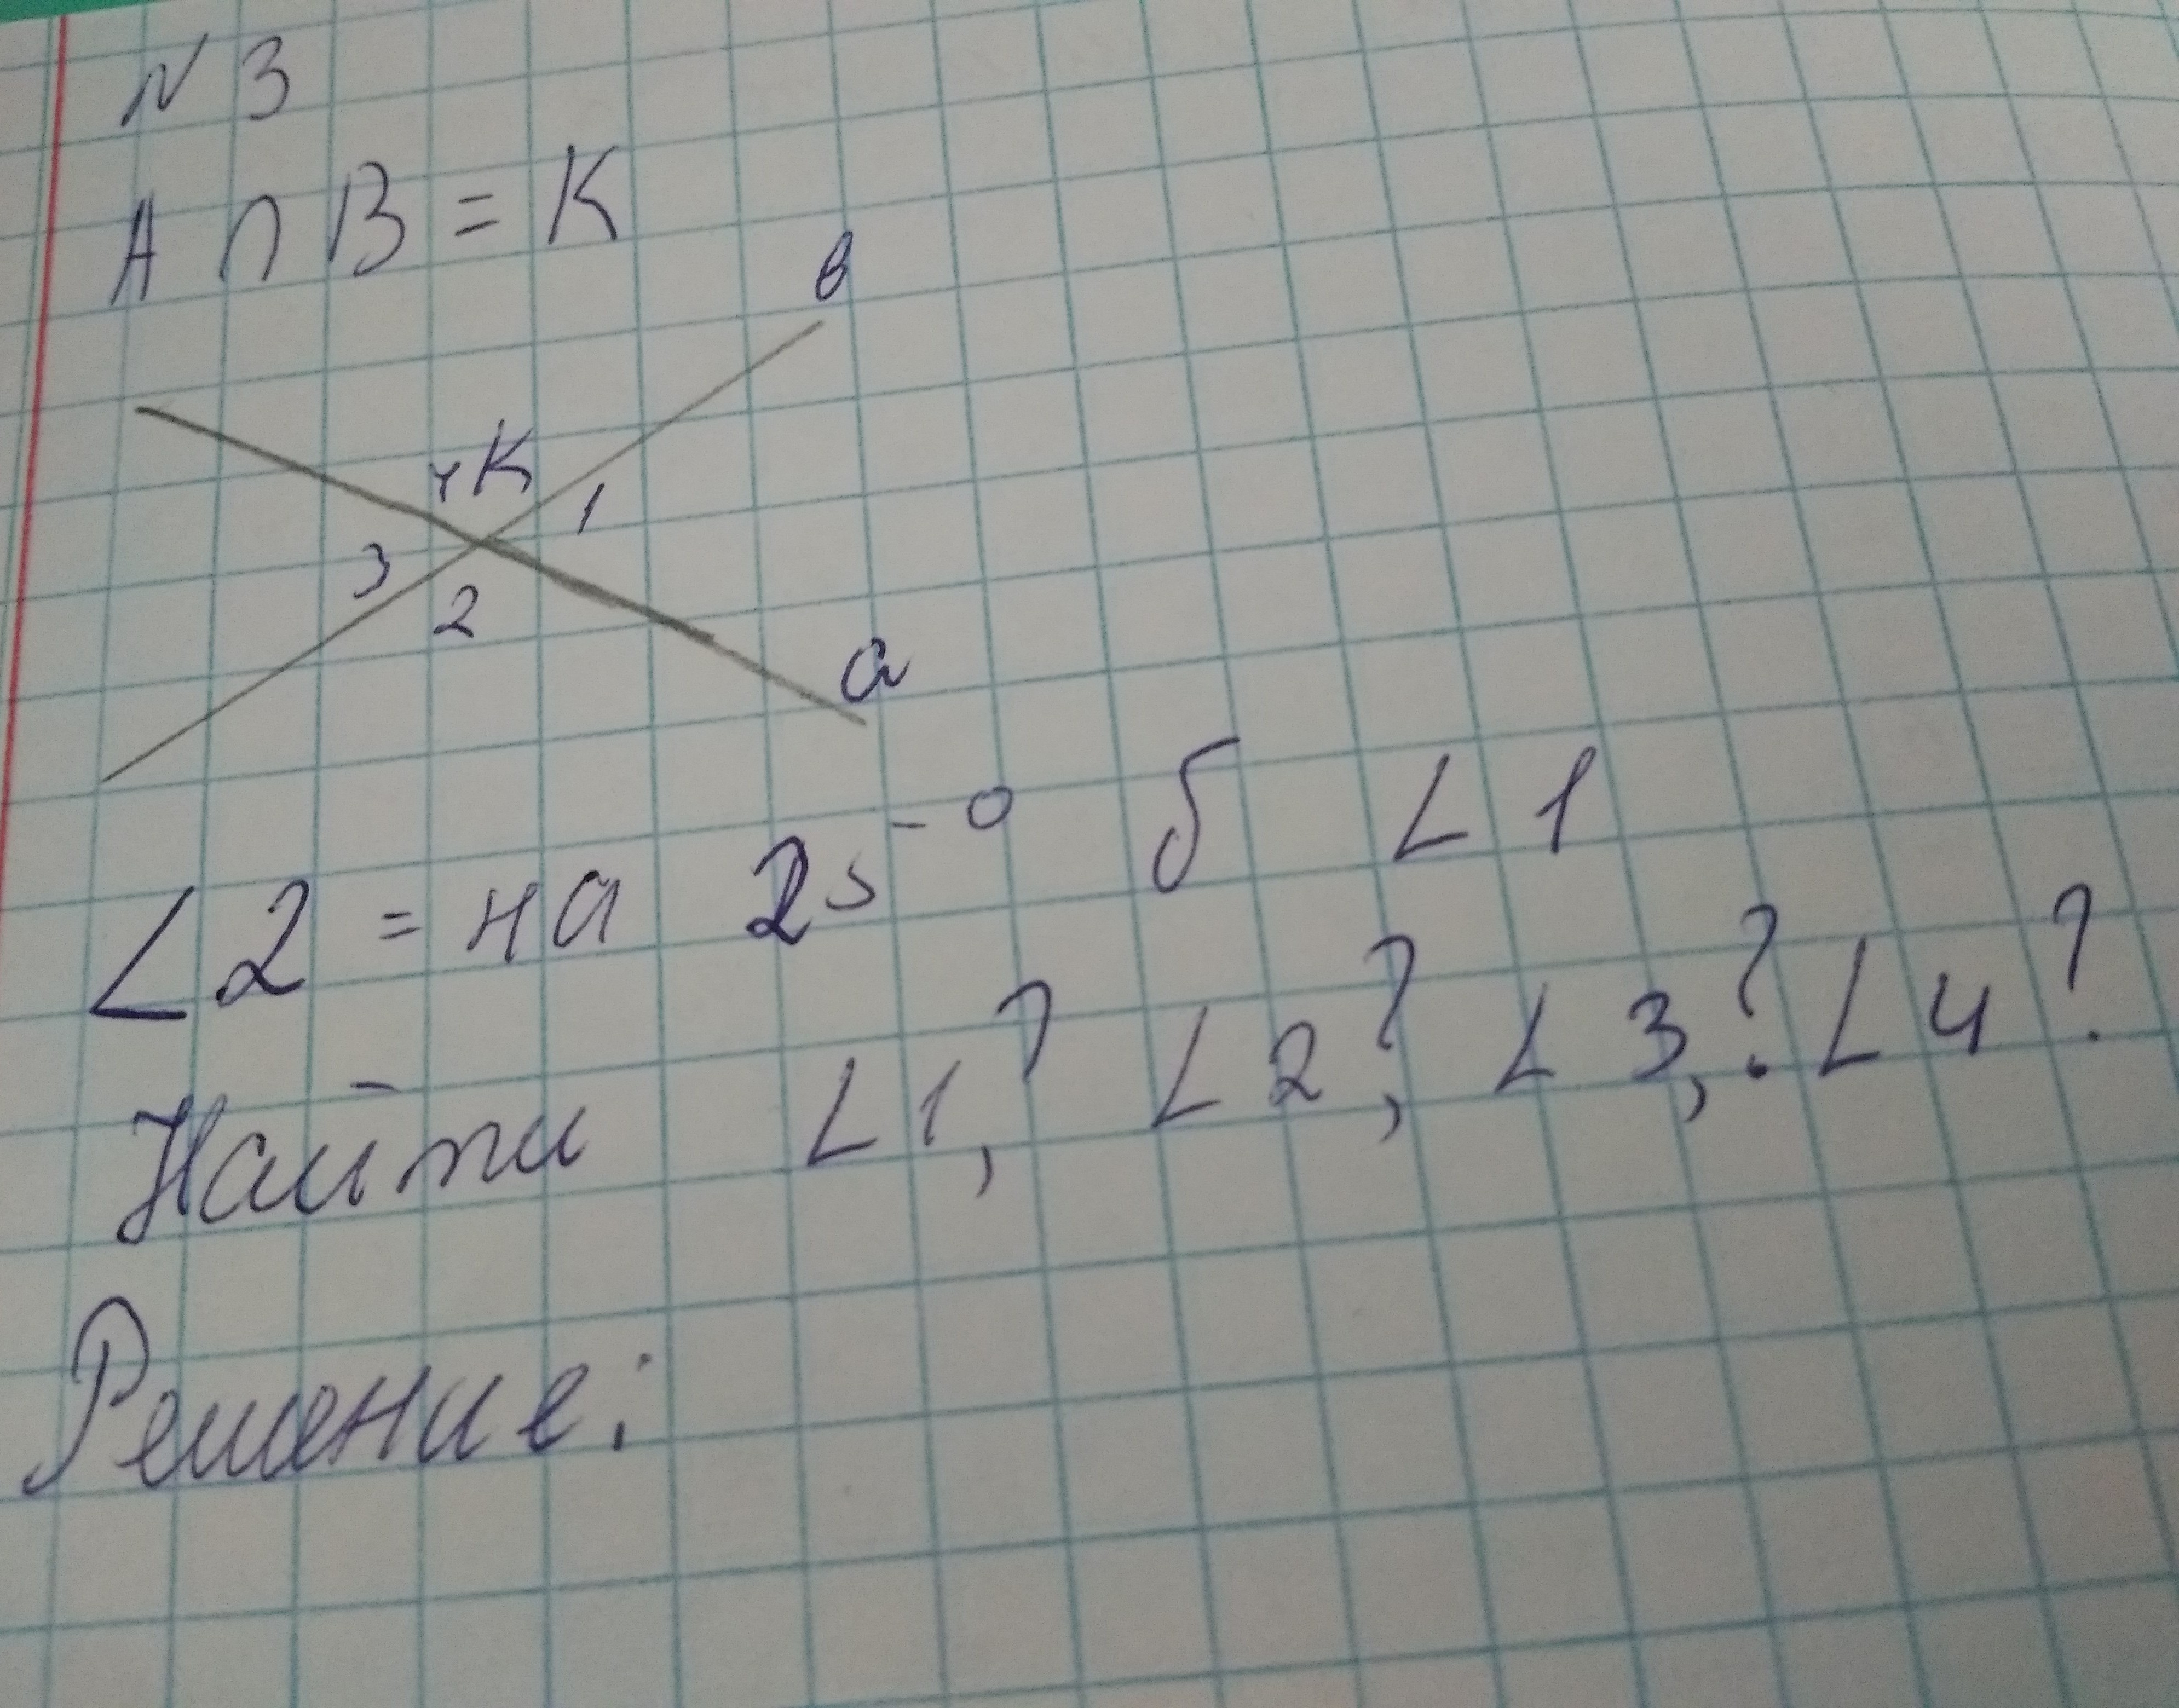 N 3
A ∩ B = K
в
4 K
1
3
2
a
∠2 = на 25° б ∠1
Найти ∠1,? ∠2,? ∠3,? ∠4?
Решение: